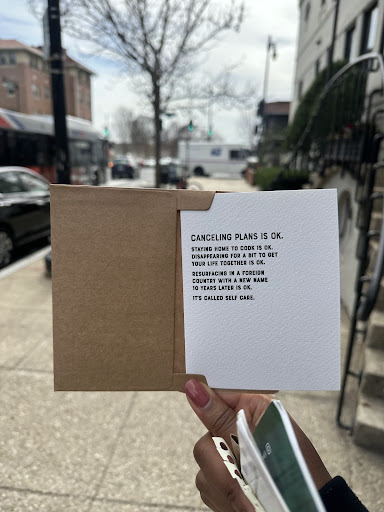 CANCELING PLANS IS OK.
STAYING HOME TO COOK IS OK.
DISAPPEARING FOR A BIT TO GET
YOUR LIFE TOGETHER IS OK.
RESURFACING IN A FOREIGN
COUNTRY WITH A NEW NAME
10 YEARS LATER IS OK.
IT'S CALLED SELF CARE.